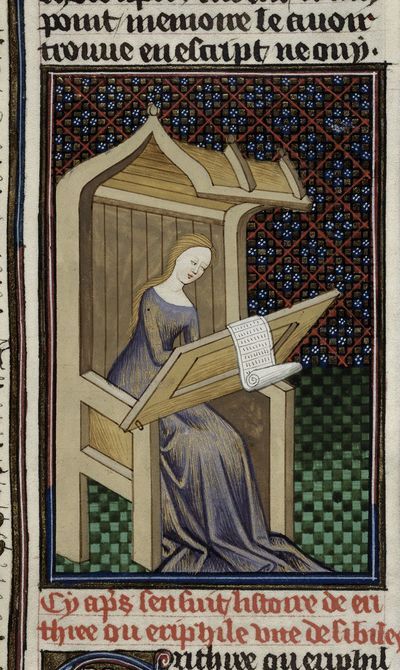 point memoire le auoir
trouue en escript ne ouy.
Cy ap̃s sensuit listoire de eri
three ou eriphile vne de sibiles
Erithree ou eriphil